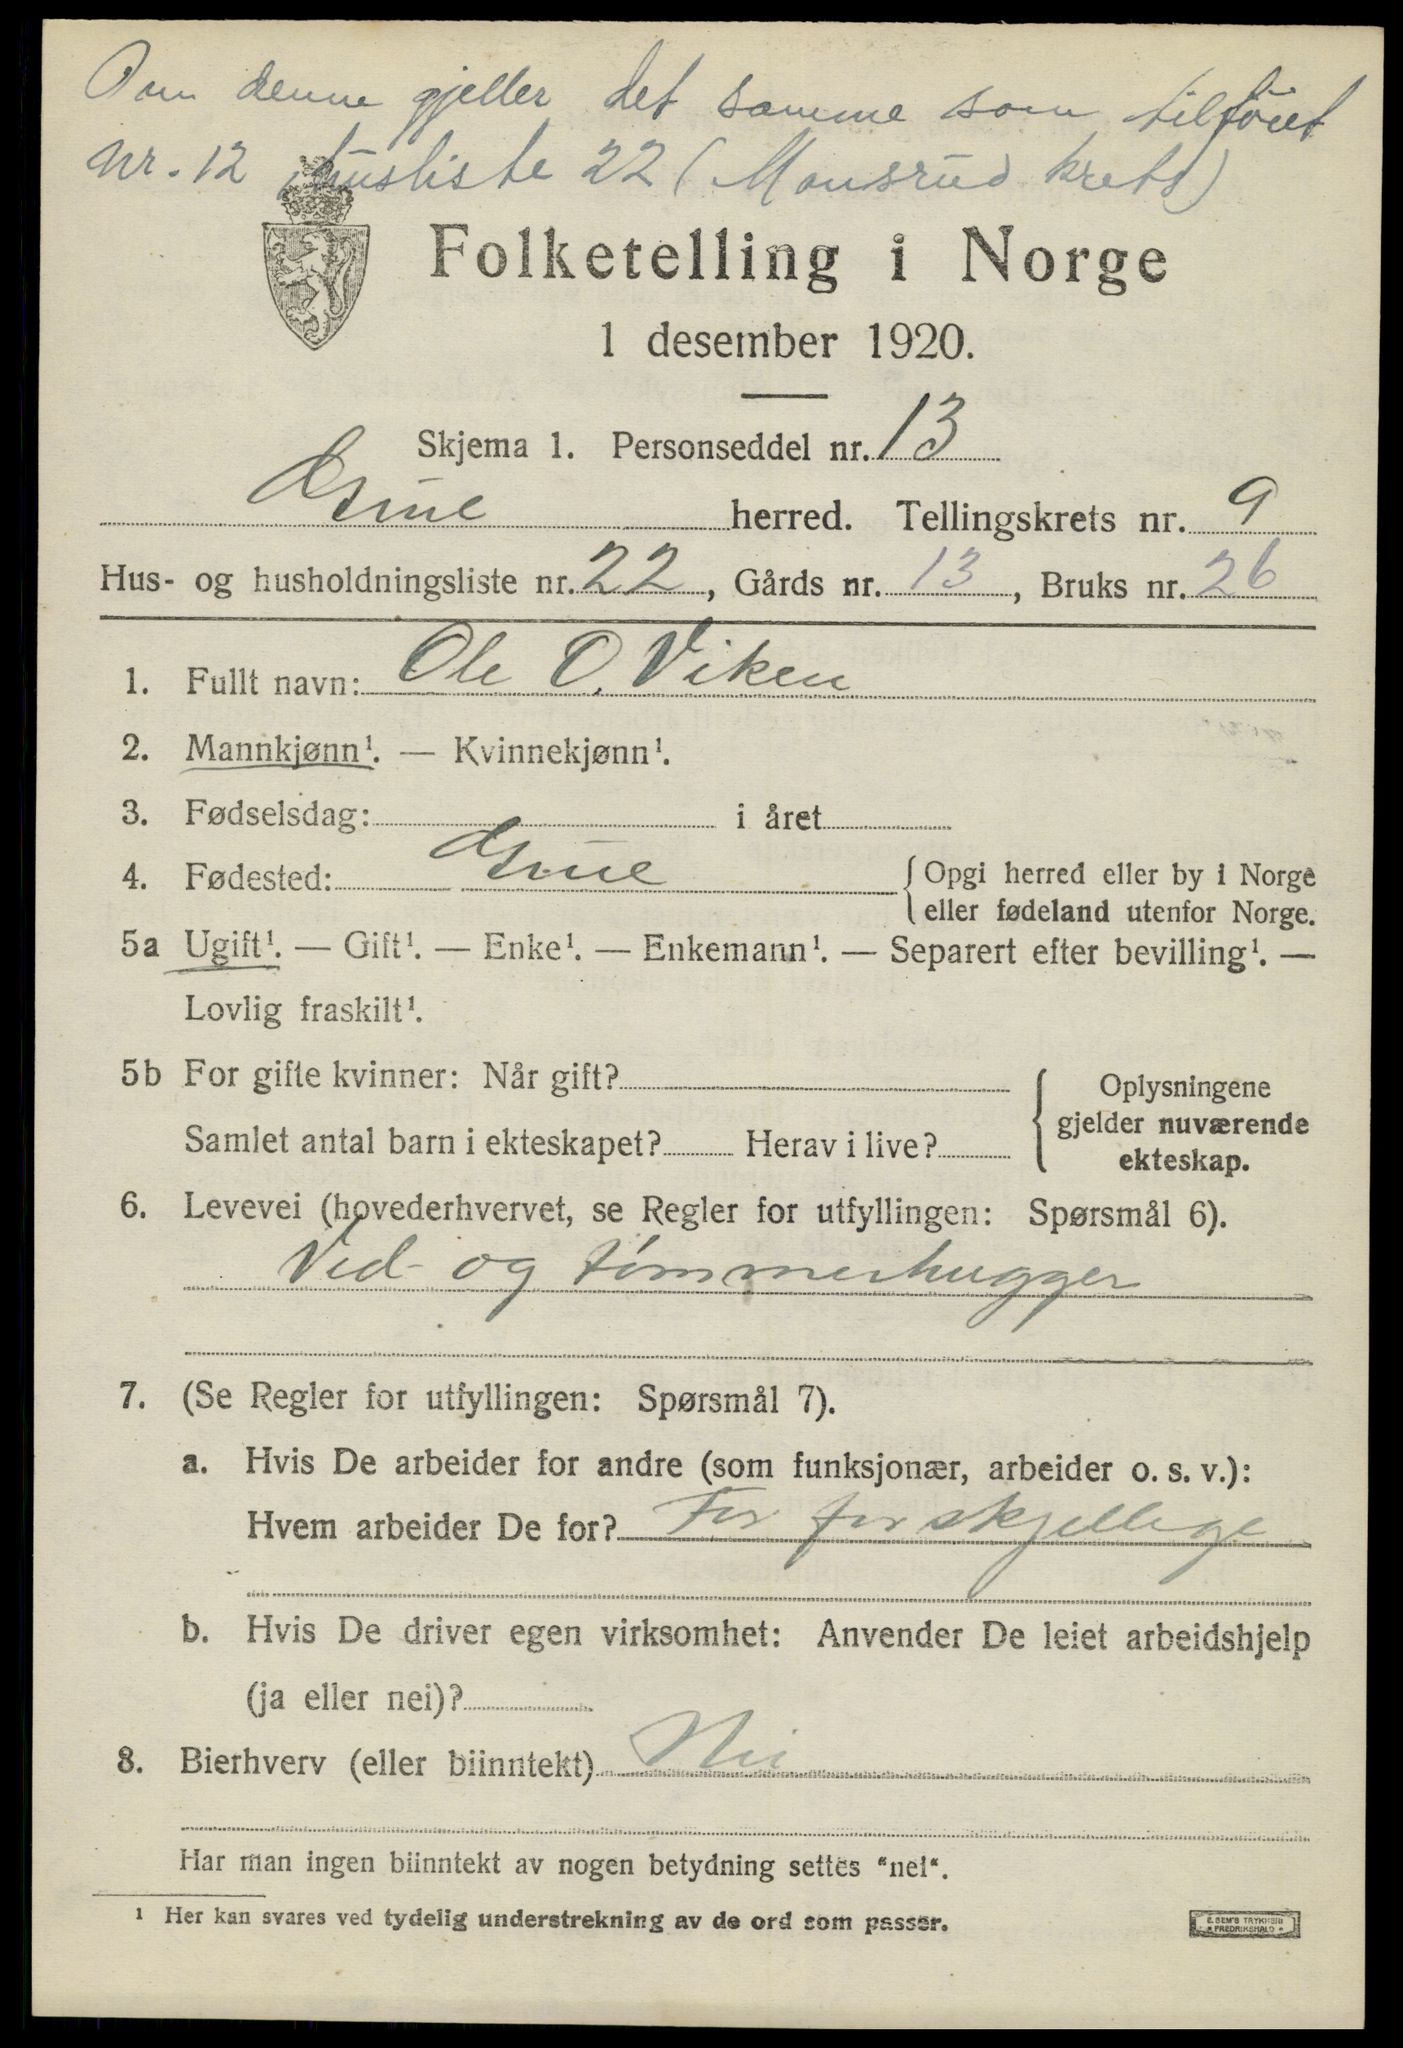 Om denne gjeller det samme som tilföiet
Nr. 12 husliste 22 (Monsrud krets)
Folketelling i Norge
1 desember 1920.
Skjema 1. Personseddel nr. 13
Grue herred. Tellingskrets nr. 9
Hus- og husholdningsliste nr. 22, Gårds nr. 13, Bruks nr. 26
1. Fullt navn: Ole O. Viken
2. Mannkjønn¹. — Kvinnekjønn¹.
3. Fødselsdag: i året
4. Fødested: Grue { Opgi herred eller by i Norge
eller fødeland utenfor Norge.
5a Ugift¹. — Gift¹. — Enke¹. — Enkemann¹. — Separert efter bevilling¹. —
Lovlig fraskilt¹.
5b For gifte kvinner: Når gift?
Samlet antal barn i ekteskapet? Herav i live?
{ Oplysningene
gjelder nuværende
ekteskap.
6. Levevei (hovederhvervet, se Regler for utfyllingen: Spørsmål 6).
Ved- og tømmerhugger
7. (Se Regler for utfyllingen: Spørsmål 7).
a. Hvis De arbeider for andre (som funksjonær, arbeider o. s. v.):
Hvem arbeider De for? For forskjellige
b. Hvis De driver egen virksomhet: Anvender De leiet arbeidshjelp
(ja eller nei)?
8. Bierhverv (eller biinntekt) Nei
Har man ingen biinntekt av nogen betydning settes "nei".
¹ Her kan svares ved tydelig understrekning av de ord som passer.
E. SEM'S TRYKKERI
FREDRIKSHALD